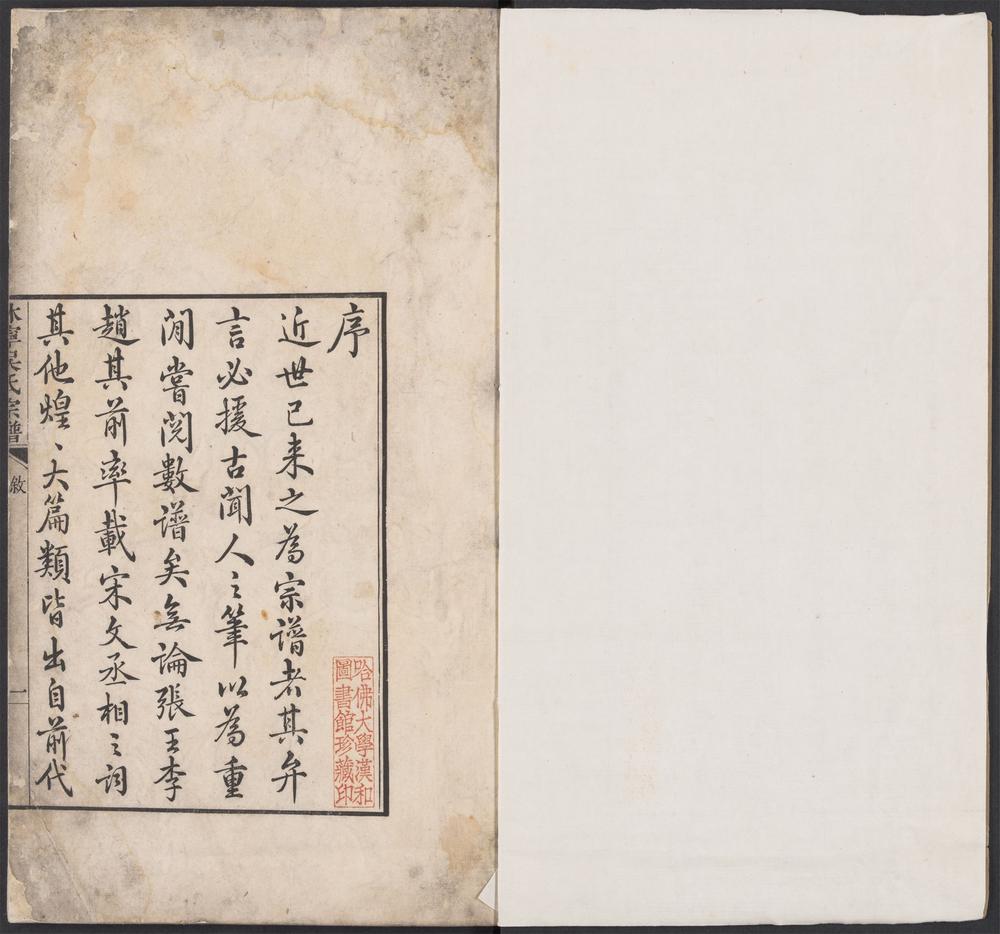 序
近世已来之為宗譜者其弁
言必援古聞人之筆以為重
間嘗閱數譜矣無論張王李
趙其前率載宋文丞相之詞
其他煌〻大篇類皆出自前代
哈佛大學漢和
圖書館珍藏印
休寧吳氏宗譜
敘
一